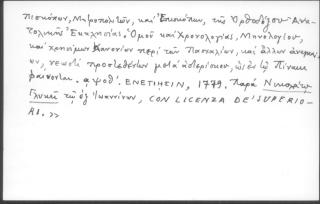 πισκόπων, Μητροπολιτῶν, καὶ Ἐπισκόπων, τῆς Ὀρθοδόξου Ἀνα-
τολικῆς Ἐκκλησίας. Ὁμοῦ καὶ Χρονολογίας, Μηνολογίου,
καὶ χρησίμων Κανονίων περὶ τῶν Πασχαλίων, καὶ ἄλλων
νεωστὶ προστεθέντων μετὰ ἀστερίσκου, ὡς ἐν τῷ Πίνακι
φαίνονται. αψοθ΄. ΕΝΕΤΙΗΣΙΝ, 1779. Παρὰ Νικολάῳ
Γλυκεῖ τῷ ἐξ Ἰωαννίνων, CON LICENZA DE' SUPERIO-
RI. >>